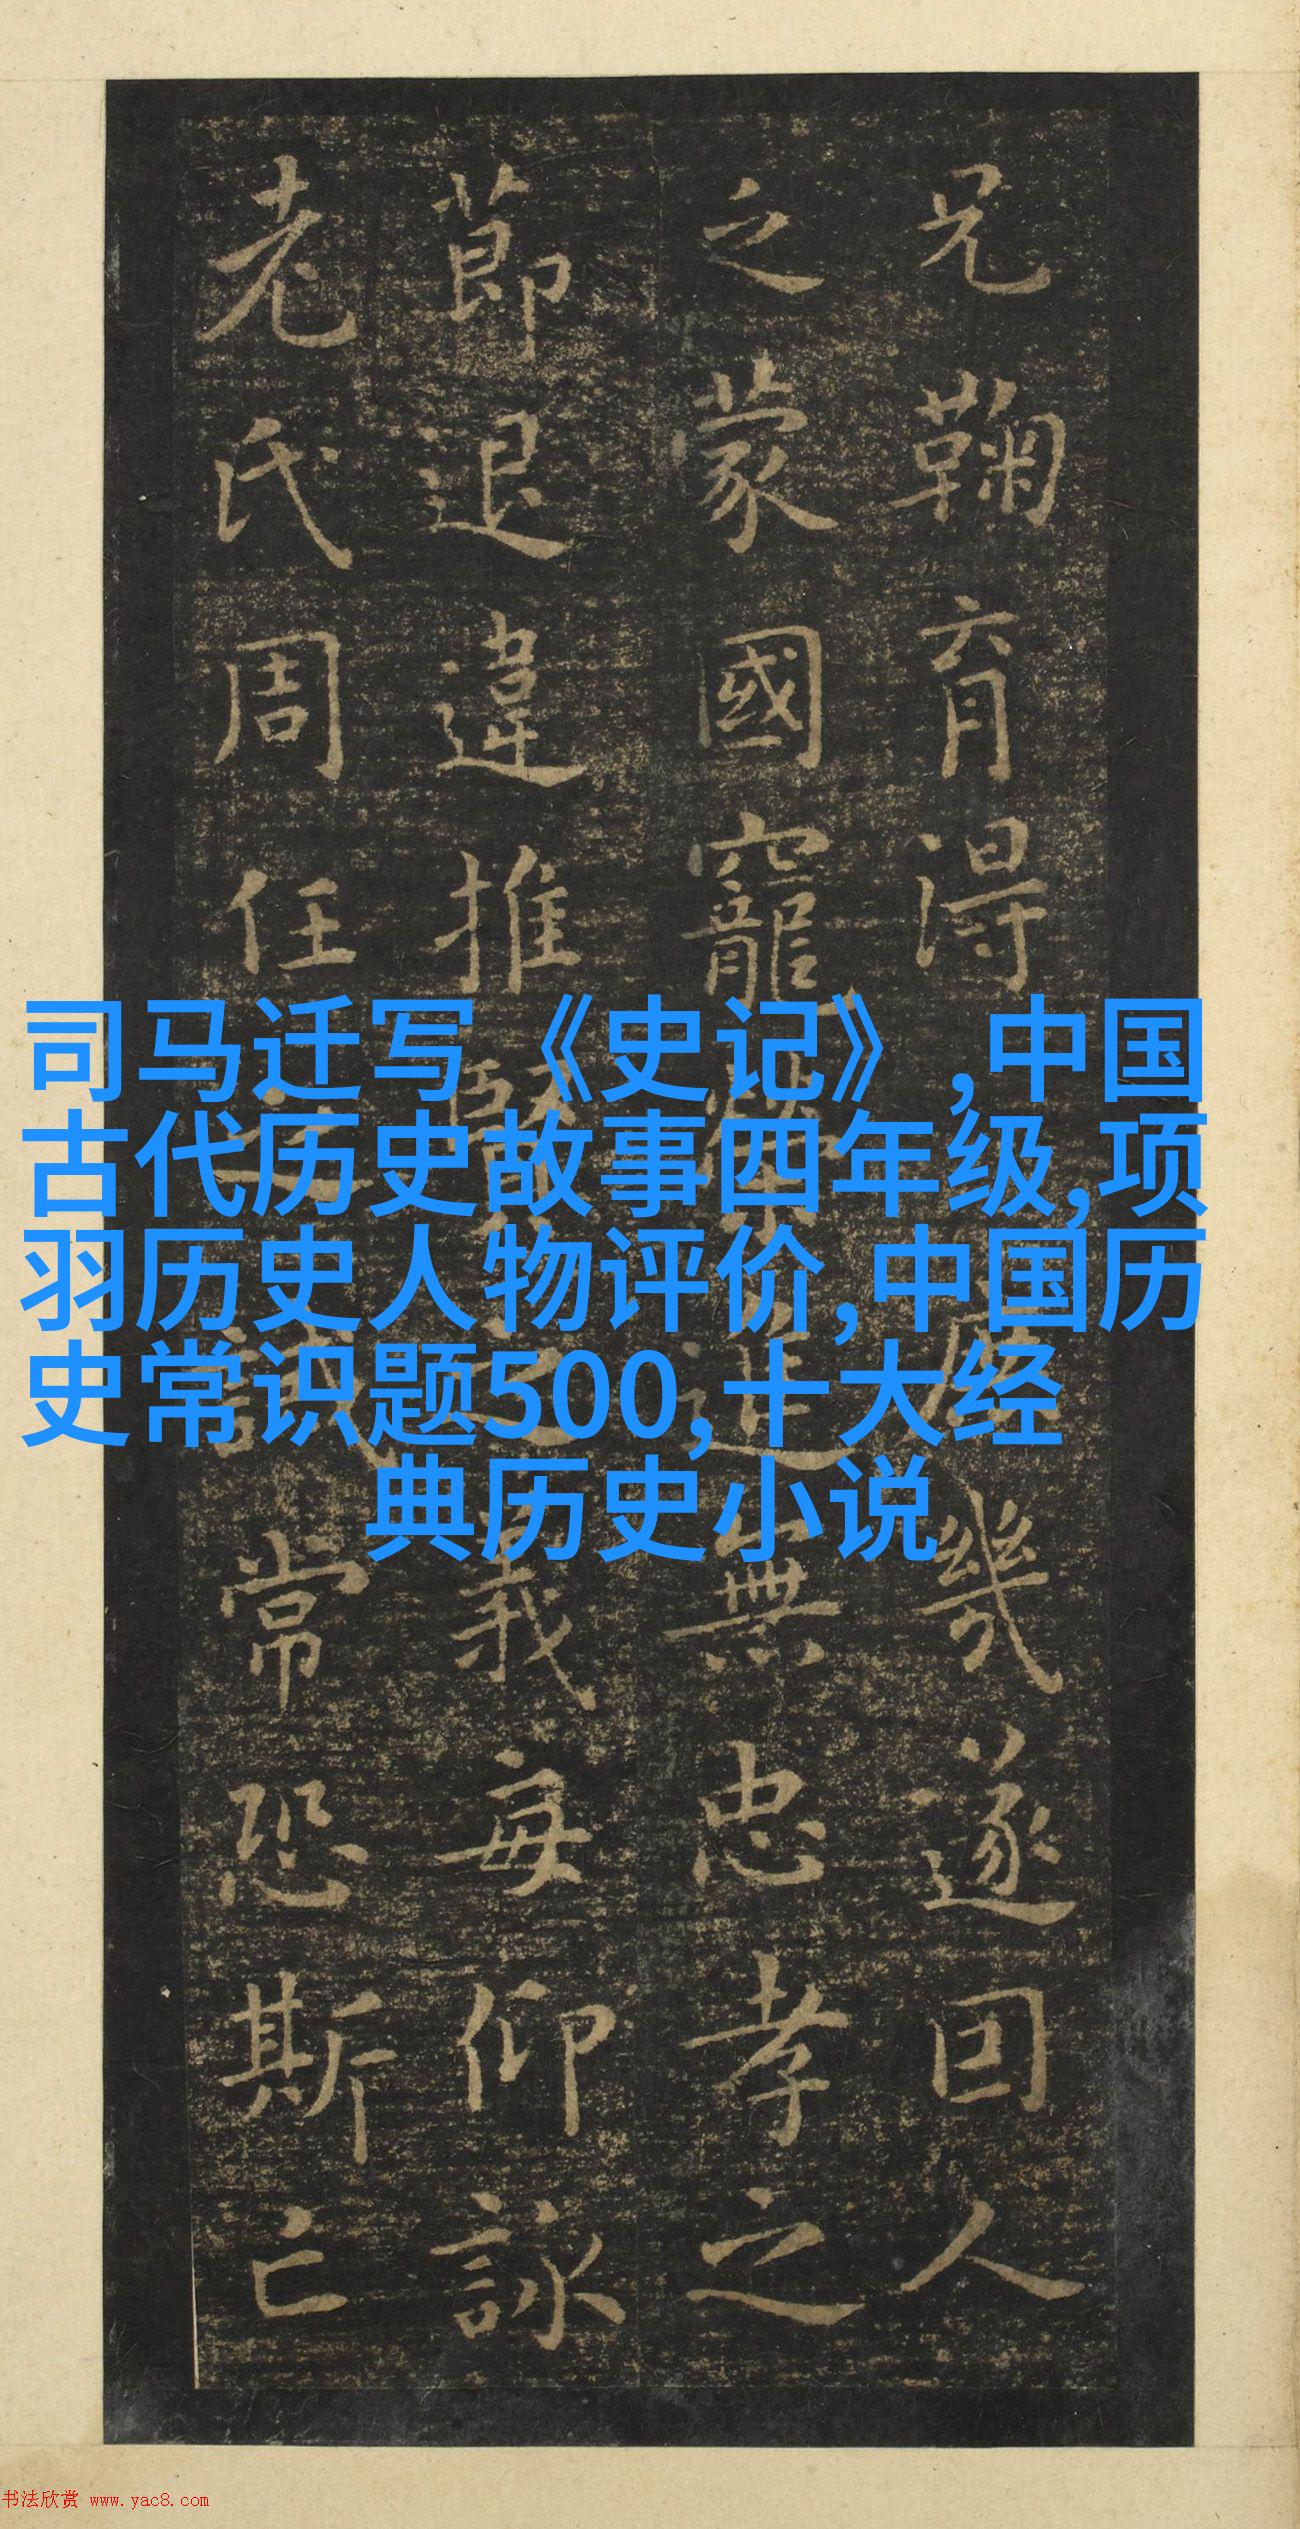 兄鞠育得幾遂因人
之蒙國寵榮進無忠孝之
莭退違推賢之義每仰詠
老氏周任之誡常恐斯亡
司马迁写《史记》,中国
古代历史故事四年级,项
羽历史人物评价,中国历
史常识题500,十大经
典历史小说
书法欣赏 www.yac8.com